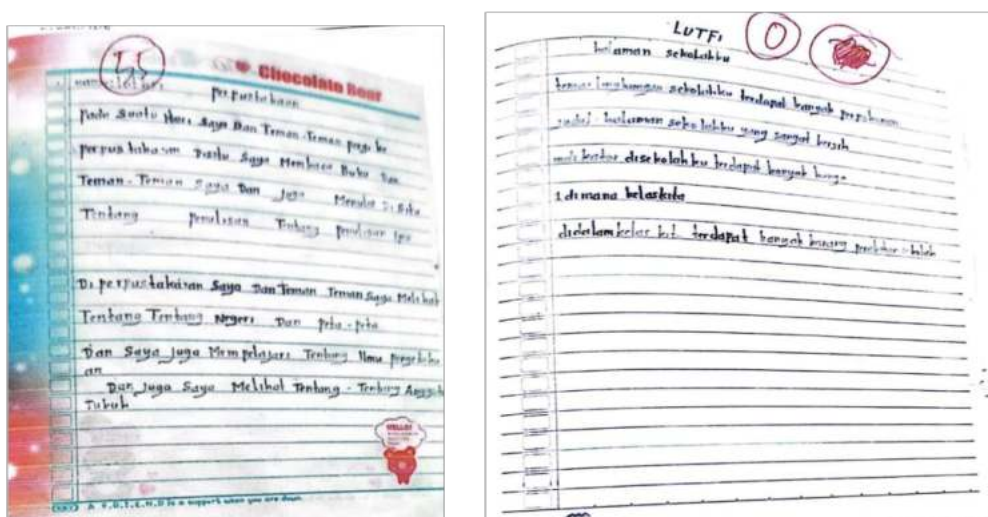 55
Chocolate Bear
perpustakaan
Pada Suatu Hari Saya Dan Teman-Teman pergi ke
perpustakaan Disitu Saya Membaca Buku Dan
Teman-Teman Saya Dan juga Menulis Di Buku
Tentang penulisan Tentang penulisan ipa
Di perpustakaan Saya Dan Teman Teman Saya Melihat
Tentang Tentang Negeri Dan peta-peta
Dan Saya juga Mempelajari Tentang Ilmu pengetahu
an
Dan juga Saya Melihat Tentang-Tentang Anggota
Tubuh
HELLO!
A F.R.I.E.N.D is a support when you are down
LUTFI
0
halaman sekolahku
lingkungan sekolahku terdapat banyak pepohonan
halaman sekolahku yang sangat bersih
disekolahku terdapat banyak bunga
dimana kelaskita
didalam kelas terdapat banyak barang